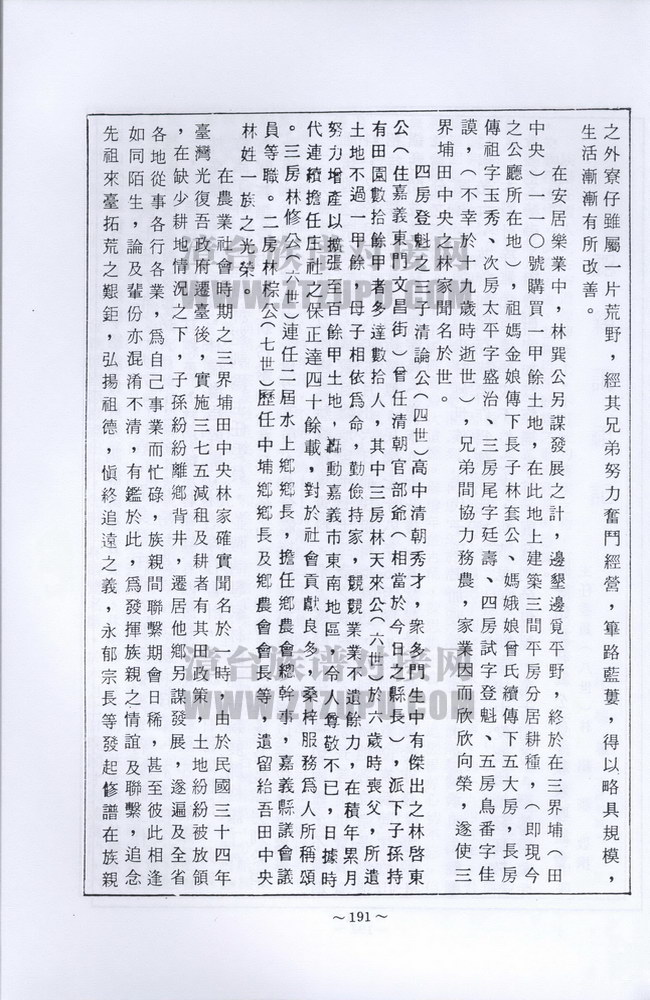 之外寮仔雖屬一片荒野，經其兄弟努力奮鬥經營，篳路藍蔞，得以略具規模，
生活漸漸有所改善。
在安居樂業中，林巽公另謀發展之計，邊墾邊覓平野，終於在三界埔（田
中央）一一〇號購買一甲餘土地，在此地上建築三間平房分居耕種，（即現今
之公廳所在地），祖媽金娘傳下長子林套公、媽娥娘曾氏續傳下五大房，長房
傳祖字玉秀、次房太平字盛治、三房尾字廷壽、四房試字登魁、五房鳥番字佳
謨，（不幸於十九歲時逝世），兄弟間協力務農，家業因而欣欣向榮，遂使三
界埔田中央之林家聞名於世。
四房登魁之三子清論公（四世）高中清朝秀才，衆多門生中有傑出之林啓東
公（住嘉義東門文昌街）曾任清朝官部爺（相當於今日之縣長），派下子孫持
有田園數拾餘甲者多達數拾人，其中三房林天來公（六世）於六歲時喪父，所遺
土地不過一甲餘，母子相依爲命，勤儉持家，競競業業不遺餘力，在積年累月
努力增產以擴張至百餘甲土地，轟動嘉義市東南地區，令人尊敬不已，日據時
代連續擔任庄社之保正達四十餘載，對於社會貢獻良多，桑梓服務爲人所稱頌
。三房林修公（六世）連任二屆水上鄉鄉長，擔任鄉農會總幹事，嘉義縣議會議
員等職。二房林棕公（七世）歷任中埔鄉鄉長及鄉農會會長等，遺留給吾田中央
林姓一族之光榮。
在農業社會時期之三界埔田中央林家確實聞名於一時，由於民國三十四年
臺灣光復吾政府遷臺後，實施三七五減租及耕者有其田政策，土地紛紛被放領
，在缺少耕地情況之下，子孫紛紛離鄉背井，遷居他鄉另謀發展，遂遍及全省
各地從事各行各業，爲自己事業而忙碌，族親間聯繫期會日稀，甚至彼此相逢
如同陌生，論及輩份亦混淆不清，有鑑於此，爲發揮族親之情誼及聯繫，追念
先祖來臺拓荒之艱鉅，弘揚祖德，愼終追遠之義，永郁宗長等發起修譜在族親
～191～
漳台族谱对接网
WWW.ZTZUPU.COM
漳台族谱对接网
WWW.ZTZUPU.COM